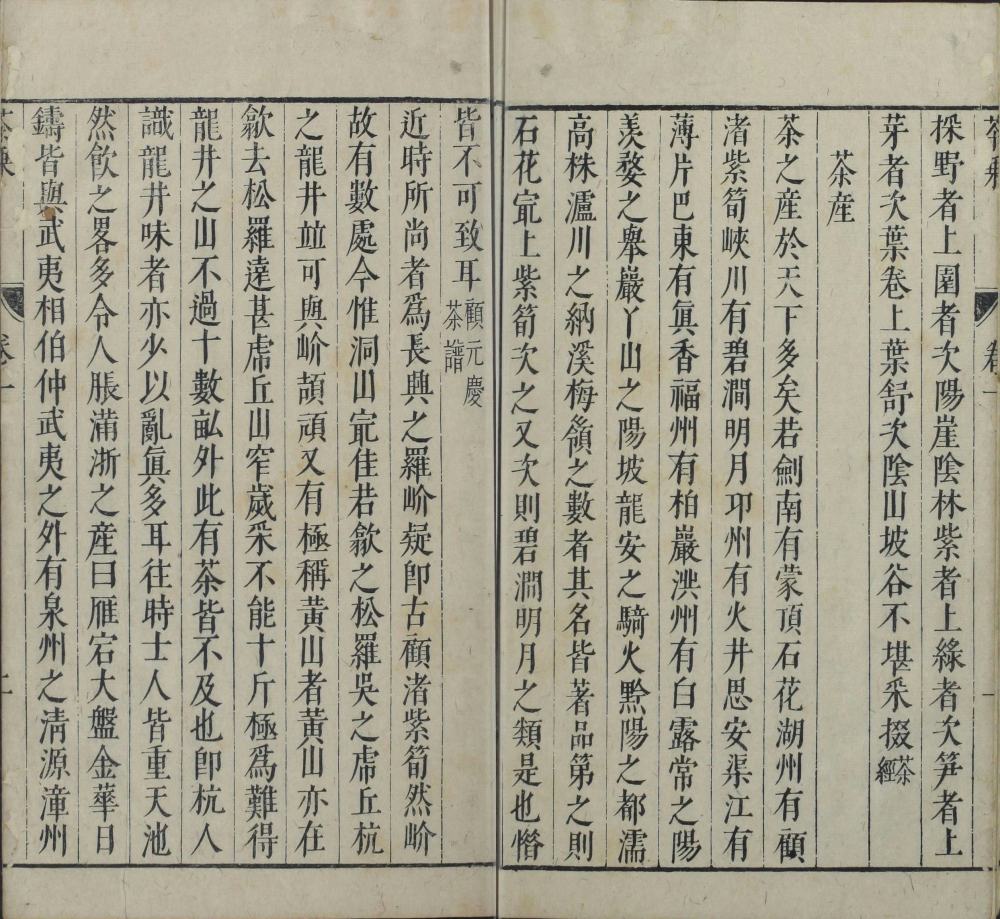 採野者上園者次陽崖陰林紫者上綠者次笋者上
芽者次葉卷上葉舒次陰山坡谷不堪采掇茶經
茶産
茶之産於天下多矣若劍南有蒙頂石花湖州有顧
渚紫筍峽川有碧澗明月卭州有火井思安渠江有
薄片巴東有眞香福州有柏巖洪州有白露常之陽
羨婺之舉巖丫山之陽坡龍安之騎火黔陽之都濡
高株瀘川之納溪梅嶺之數者其名皆著品第之則
石花㝡上紫筍次之又次則碧澗明月之類是也惜
皆不可致耳顧元慶茶譜
近時所尚者爲長興之羅岕疑卽古顧渚紫筍然岕
故有數處今惟洞山㝡佳若歙之松羅吳之虎丘杭
之龍井竝可與岕頡頏又有極稱黃山者黃山亦在
歙去松羅遠甚虎丘山窄歲采不能十斤極爲難得
龍井之山不過十數畝外此有茶皆不及也卽杭人
識龍井味者亦少以亂眞多耳往時士人皆重天池
然飮之畧多令人脹滿浙之産曰雁宕大盤金華日
鑄皆與武夷相伯仲武夷之外有泉州之清源漳州
卷一
二